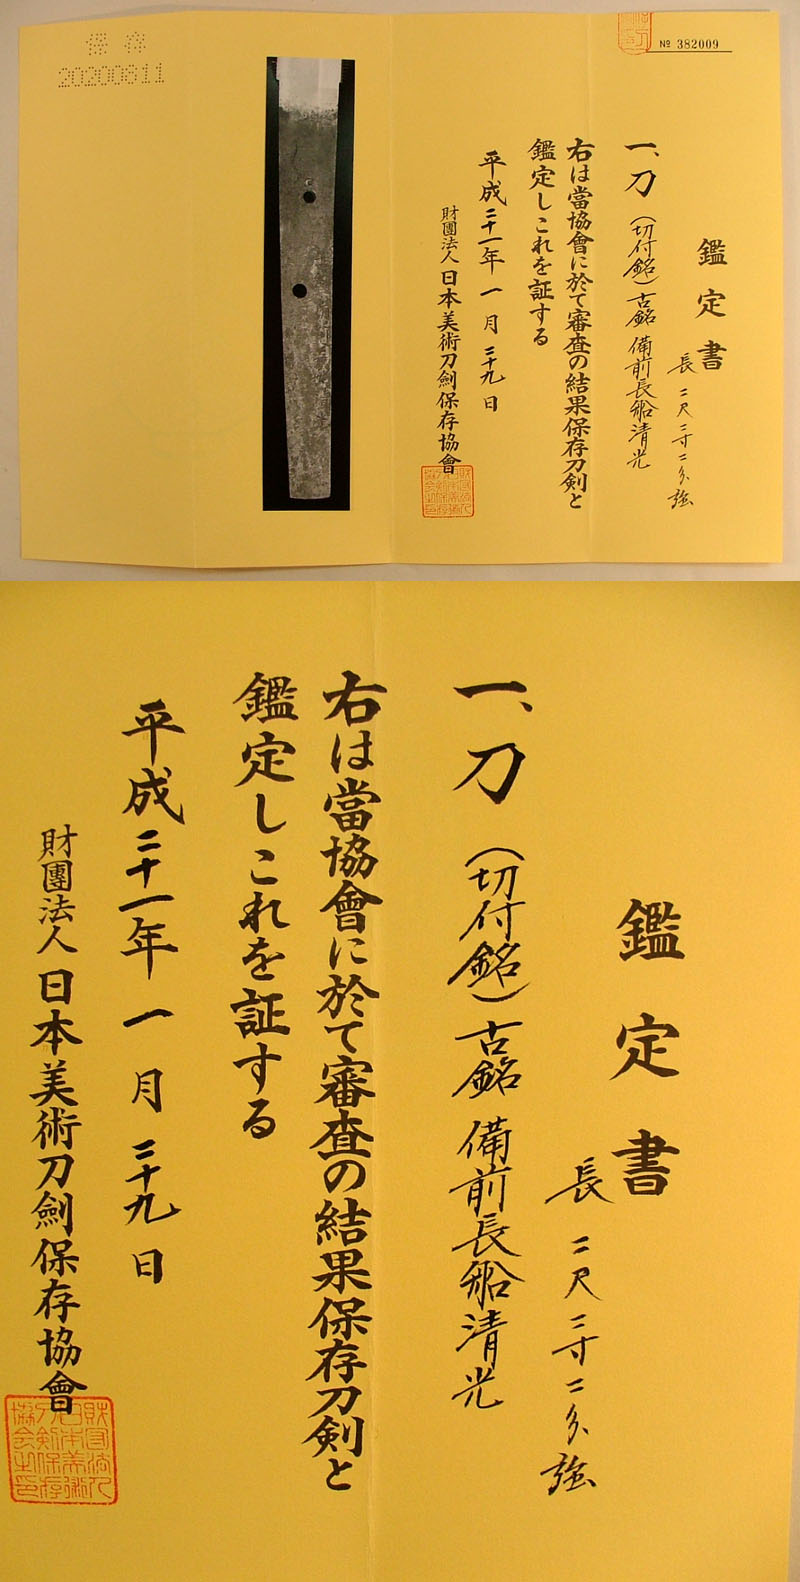 № 382009
鑑定書
長 二尺二寸二分強
一、刀 (切付銘) 古銘 備前長船清光
右は當協會に於て審査の結果保存刀剣と
鑑定しこれを証する
平成二十一年 一月 二十九日
財團法人 日本美術刀劍保存協會
保存
20200811
鑑定書
長 二尺二寸二分強
一、刀 (切付銘) 古銘 備前長船清光
右は當協會に於て審査の結果保存刀剣と
鑑定しこれを証する
平成二十一年 一月 二十九日
財團法人 日本美術刀劍保存協會